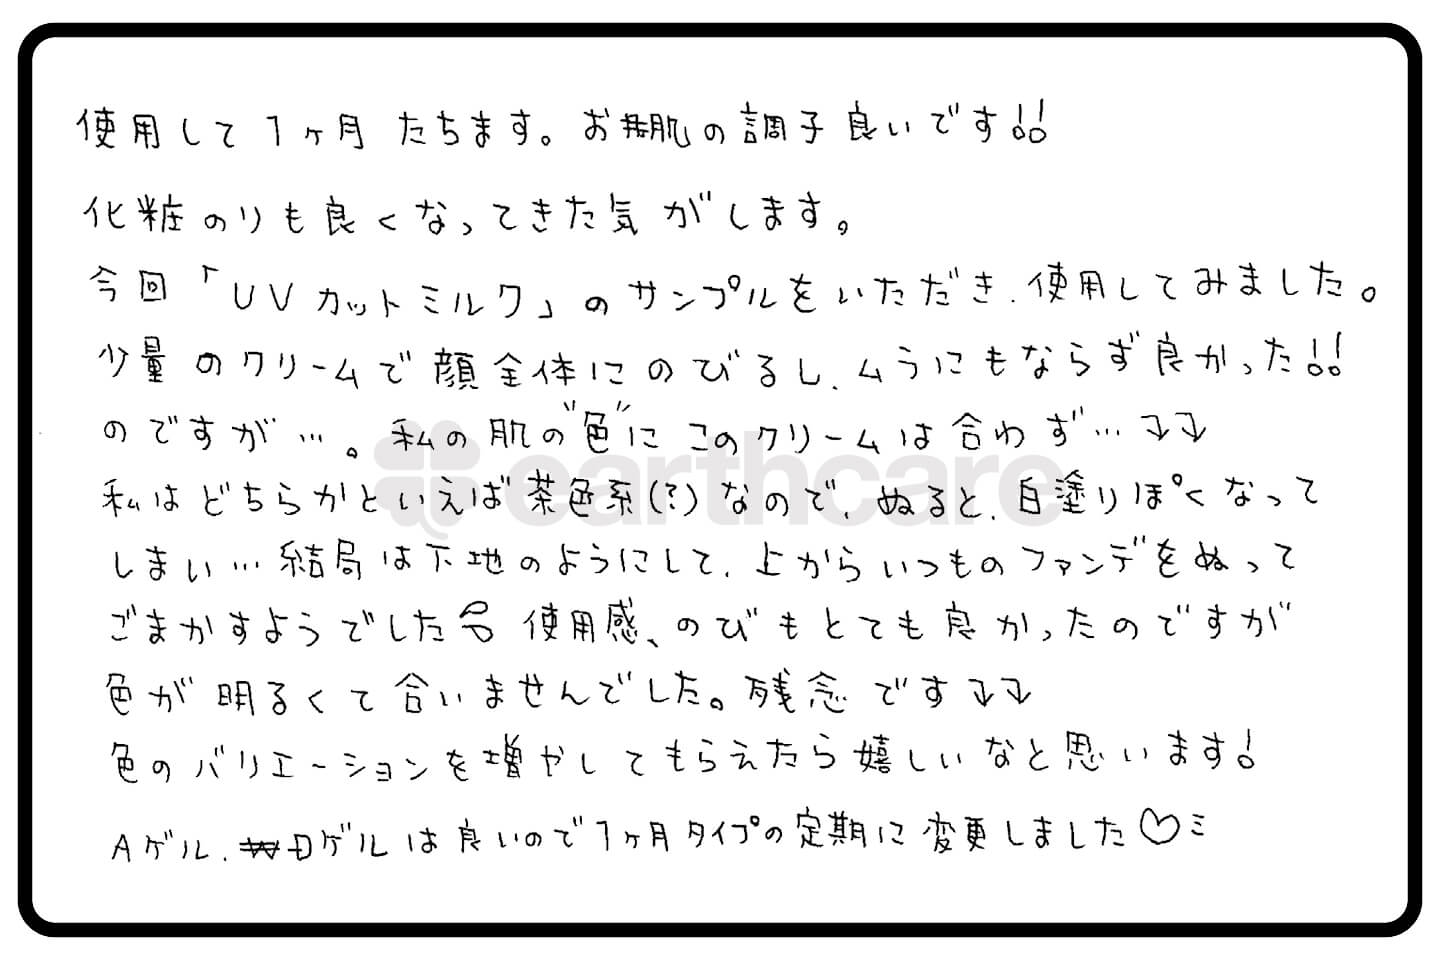 使用して1ヶ月 たちます。お肌の調子良いです!!
化粧のりも良くなってきた気がします。
今回「UVカットミルク」のサンプルをいただき、使用してみました。
少量のクリームで顔全体にのびるし、ムラにもならず良かった!!
のですが…。私の肌の"色"にこのクリームは合わず…↴↴
私はどちらかといえば茶色系(?)なので、ぬると、白塗りぽくなって
しまい…結局は下地のようにして、上からいつものファンデをぬって
ごまかすようでした 使用感、のびもとても良かったのですが
色が明るくて合いませんでした。残念です↴↴
色のバリエーションを増やしてもらえたら嬉しいなと思います!
Aゲル、Dゲルは良いので1ヶ月タイプの定期に変更しました♡ミ
earthcare